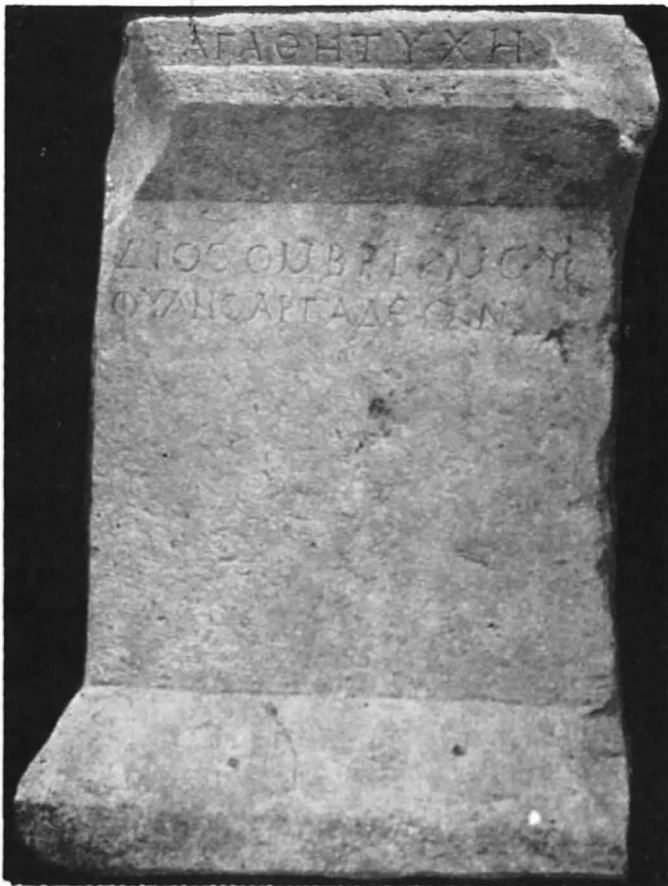 ΑΓΑΘΗΤΥΧΗ
ΔΙΟϹΟΜΒΡΙΜΟΥ
ΦΥΛΗϹΑΡΓΑΔΕΩΝ